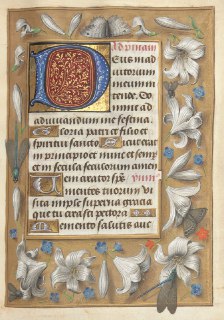 Ad primam
Deus in ad
iutorium
meum in
tende. Do
mine ad
adiuuandum me festina.
Gloria patri et filio et
spiritui sancto Sicut erat
in principio et nunc et semp
et in secula seculorum amen
Veni creator spūs
Mentes tuorum vi
sita imple superna gratia
que tu creasti pectora
Memento salutis auc